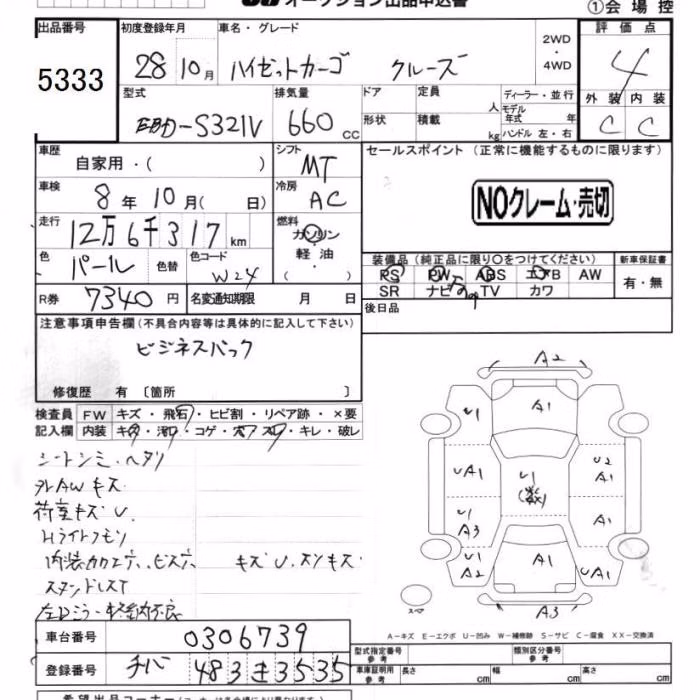 オークション出品申込書
①会場控
出品番号
5333
初度登録年月
28 10月
車名・グレード
ハイゼットカーゴ クルーズ
2WD
・
4WD
評価点
4
外装 内装
C C
型式
EBD-S321V
排気量
660 cc
ドア
形状
定員 人
積載 kg
ディーラー・並行
モデル年式 年
ハンドル 左・右
車歴
自家用・( )
シフト
MT
セールスポイント (正常に機能するものに限ります)
NOクレーム・売切
車検
8年10月( 日)
冷房
AC
走行
12万6千317km
燃料
ガソリン
・
軽油
・
( )
色
パール
色替
色コード
W24
装備品 (純正品に限り〇をつけてください)
PS PW ABS エアB AW
SR ナビ TV カワ
新車保証書
有・無
R券
7340円
名変通知期限 月 日
後日品
注意事項申告欄 (不具合内容等は具体的に記入して下さい)
ビジネスパック
修復歴 有 〔箇所 〕
検査員
記入欄
FW キズ・飛石・ヒビ割・リペア跡・×要
内装 キズ・汚れ・コゲ・穴・スレ・キレ・破レ
シートシミ・ヘタリ
外AWキズ
荷室キズU
Hライトクモリ
内装カワエ穴、ビス穴 キズU
スタンドレスT
A2
U1
A1
UA1
U1
U2
A1
U1
A3
A1
U1
A2
A1
UA1
A3
スペア
A-キズ E-エクボ U-凹み W-補修跡 S-サビ C-腐食 XX-交換済
車台番号
0306739
登録番号
チバ 483 ま 3535
型式指定番号
参考
類別区分番号
参考
車庫証明用
参考
長さ cm
幅 cm
高さ cm
希望出品コーナー